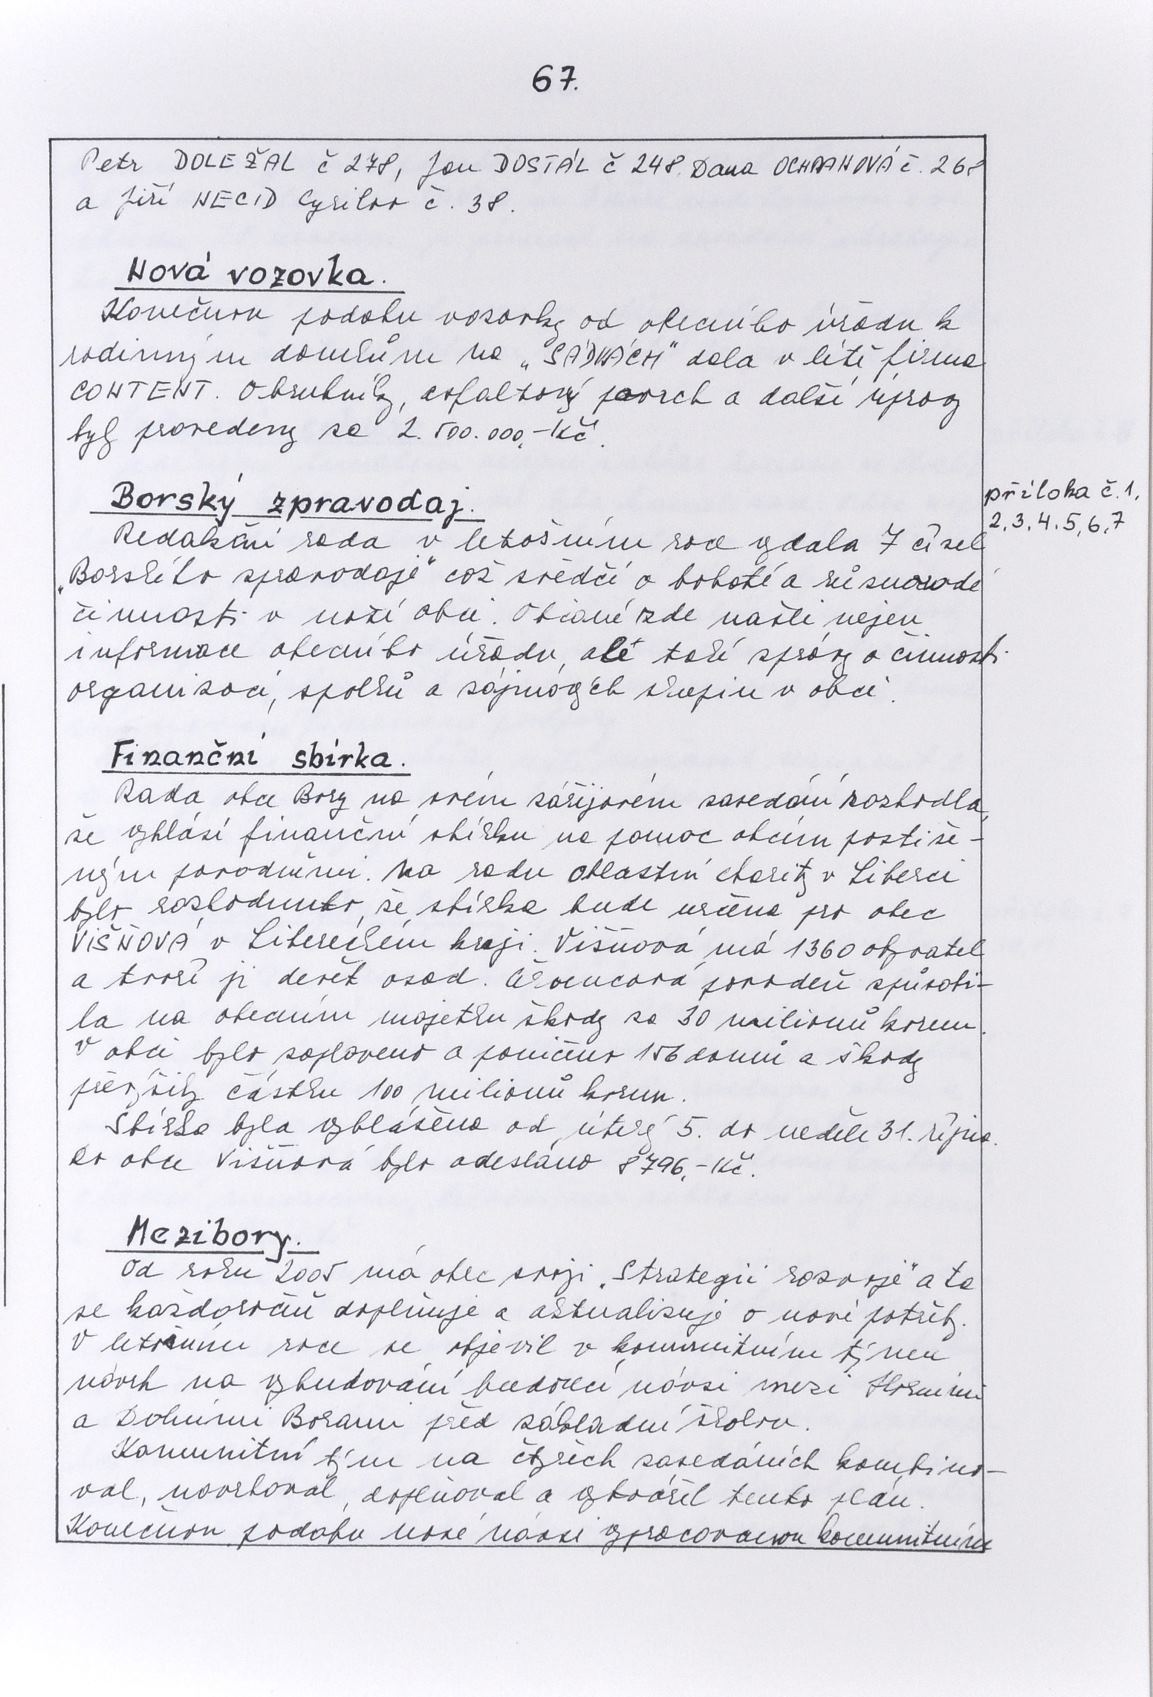 67.
Petr DOLEŽAL č 278, Jan DOSTÁL č 248. Dana OCHRANOVÁ č. 268
a Jiří NECID Cyrilov č. 38.
Nová vozovka.
Konečnou podobu vozovky od obecního úřadu k
rodinným domkům na „SÁDKÁCH" dala v létě firma
CONTENT. Obrubníky, asfaltový povrch a další úpravy
byly provedeny za 2.500.000,-Kč.
Borský zpravodaj.
příloha č.1,
2,3,4,5,6,7
Redakční rada v letošním roce vydala 7 čísel
„Borského zpravodaje" což svědčí o bohaté a různorodé
činnosti v naší obci. Občané zde našli nejen
informace obecního úřadu, ale také zprávy o činnosti
organizací, spolků a zájmových skupin v obci.
Finanční sbírka.
Rada obce Bory na svém zářijovém zasedání rozhodla,
že vyhlásí finanční sbírku na pomoc obcím postiže-
ným povodněmi. Na radu oblastní charity v Liberci
bylo rozhodnuto, že sbírka bude určena pro obec
VIŠŇOVÁ v Libereckém kraji. Višňová má 1360 obyvatel
a tvoří ji devět osad. Červencová povodeň způsobi-
la na obecním majetku škody za 30 milionů korun.
V obci bylo zaplaveno a poničeno 156 domů a škody
převýšily částku 100 milionů korun.
Sbírka byla vyhlášena od úterý 5. do neděle 31. října.
Do obce Višňová bylo odesláno 8796,-Kč.
Mezibory.
Od roku 2005 má obec svoji „Strategii rozvoje" a ta
se každoročně doplňuje a aktualizuje o nové potřeby.
V letošním roce se objevil v komunitním týmu
návrh na vybudování budoucí návsi mezi Horními
a Dolními Borami před základní školou.
Komunitní tým na čtyřech zasedáních kombino-
val, navrhoval, doplňoval a vytvářel tento plán.
Konečnou podobu nové návsi vypracovanou komunitním